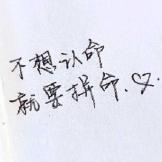 不想认命
就要拼命.♡.